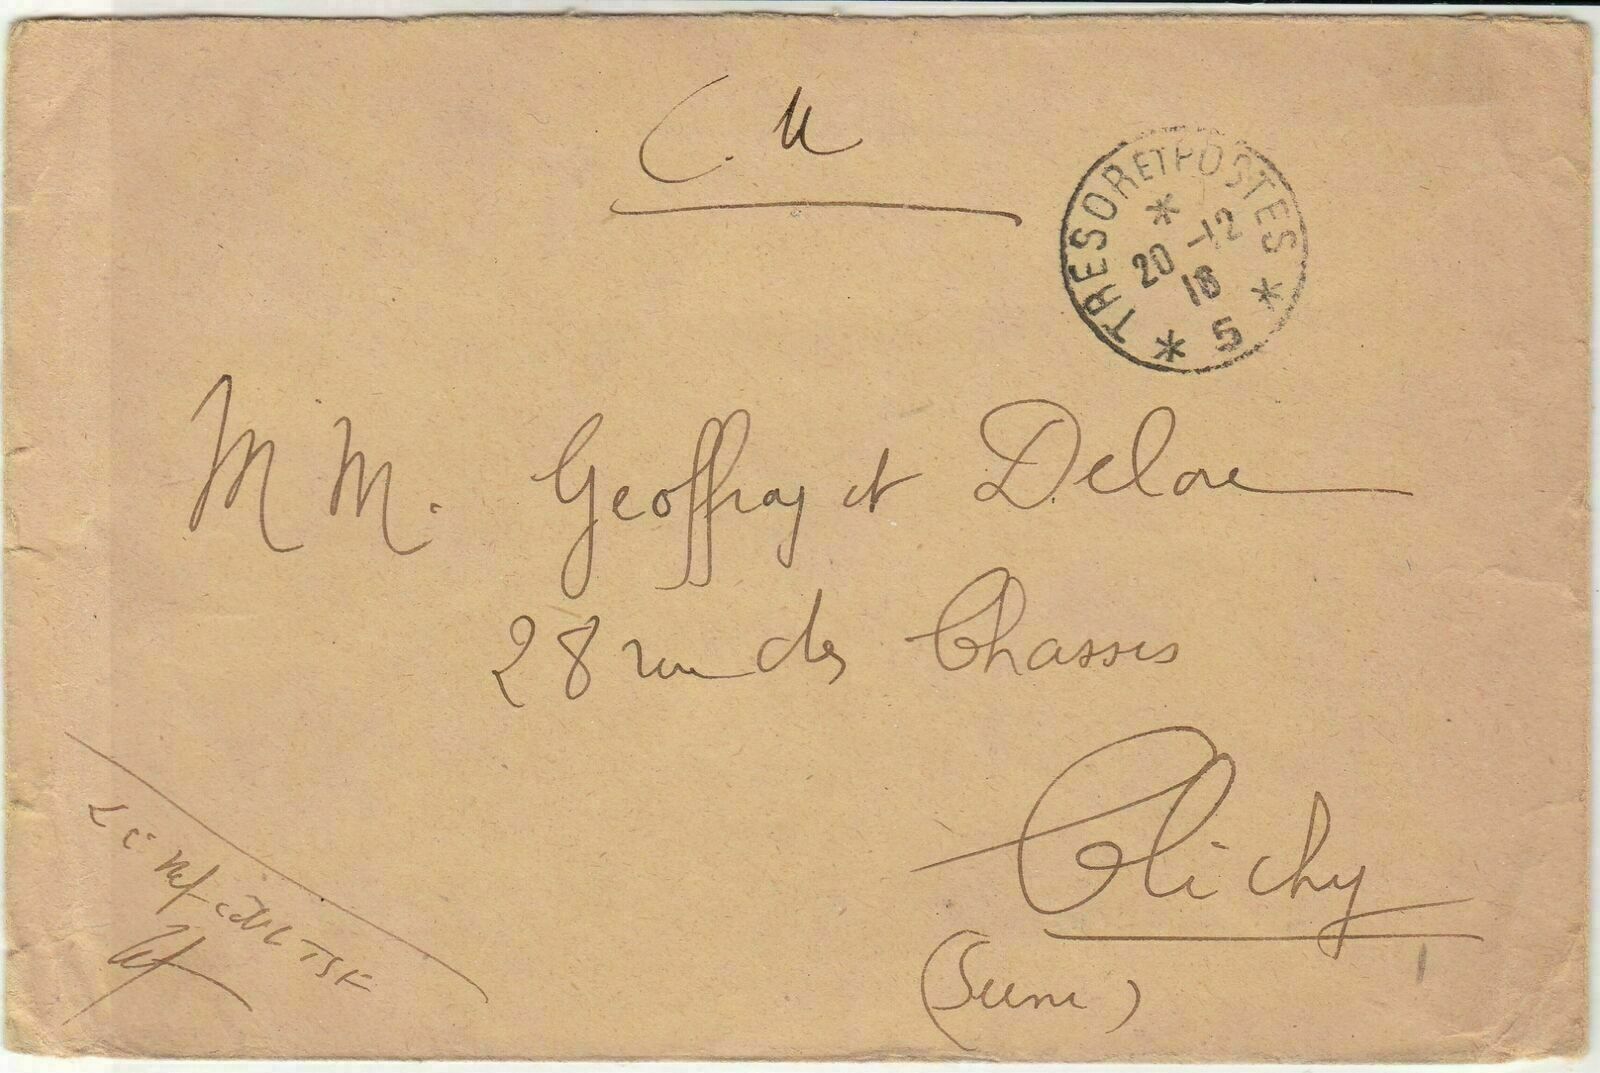 C. M
TRESOR ET POSTES
20 -12
18
* 5 *
MM. Geoffray et Delore
28 rue des Chasses
Clichy
(Seine)
TSF